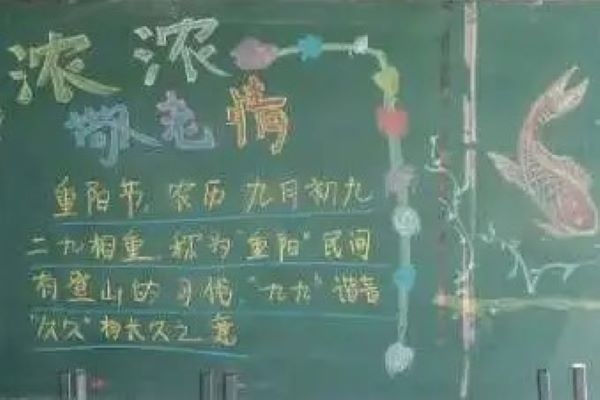 浓浓
老情
重阳节,农历九月初九
二九相重,称为"重阳"民间
有登山的习俗,"九九"谐音
"久久"有长久之意